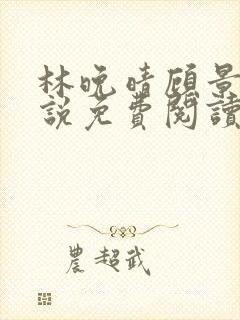 林晚晴顾景
說免費閱讀
農超武